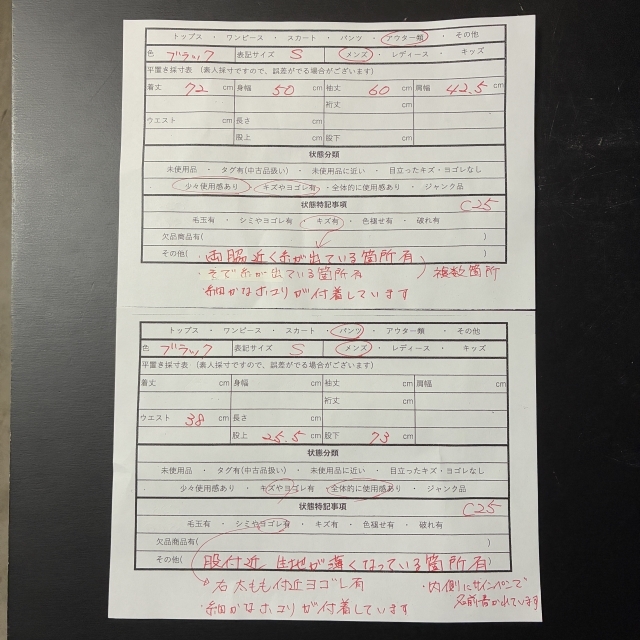 トップス ・ ワンピース ・ スカート ・ パンツ ・ アウター類 ・ その他
色 ブラック 表記サイズ S ・ メンズ ・ レディース ・ キッズ
平置き採寸表 (素人採寸ですので、誤差がでる場合がございます)
着丈 72 cm 身幅 50 cm 袖丈 60 cm 肩幅 42.5 cm
裄丈 cm
ウエスト cm 長さ cm
股上 cm 股下 cm
状態分類
未使用品 ・ タグ有(中古品扱い) ・ 未使用品に近い ・ 目立ったキズ・ヨゴレなし
・ 少々使用感あり ・ キズやヨゴレ有 ・ 全体的に使用感あり ・ ジャンク品
状態特記事項 C25
毛玉有 ・ シミやヨゴレ有 ・ キズ有 ・ 色褪せ有 ・ 破れ有
欠品商品有( )
その他( ・両脇近く糸が出ている箇所有 )
・そで糸が出ている箇所有 複数箇所
・細かなホコリが付着しています
トップス ・ ワンピース ・ スカート ・ パンツ ・ アウター類 ・ その他
色 ブラック 表記サイズ S ・ メンズ ・ レディース ・ キッズ
平置き採寸表 (素人採寸ですので、誤差がでる場合がございます)
着丈 cm 身幅 cm 袖丈 cm 肩幅 cm
裄丈 cm
ウエスト 38 cm 長さ cm
股上 25.5 cm 股下 73 cm
状態分類
未使用品 ・ タグ有(中古品扱い) ・ 未使用品に近い ・ 目立ったキズ・ヨゴレなし
・ 少々使用感あり ・ キズやヨゴレ有 ・ 全体的に使用感あり ・ ジャンク品
状態特記事項 C25
毛玉有 ・ シミやヨゴレ有 ・ キズ有 ・ 色褪せ有 ・ 破れ有
欠品商品有( )
その他( 股付近 生地が薄くなっている箇所有 )
右太もも付近ヨゴレ有 ・内側にサインペンで
・細かなホコリが付着しています 名前書かれています